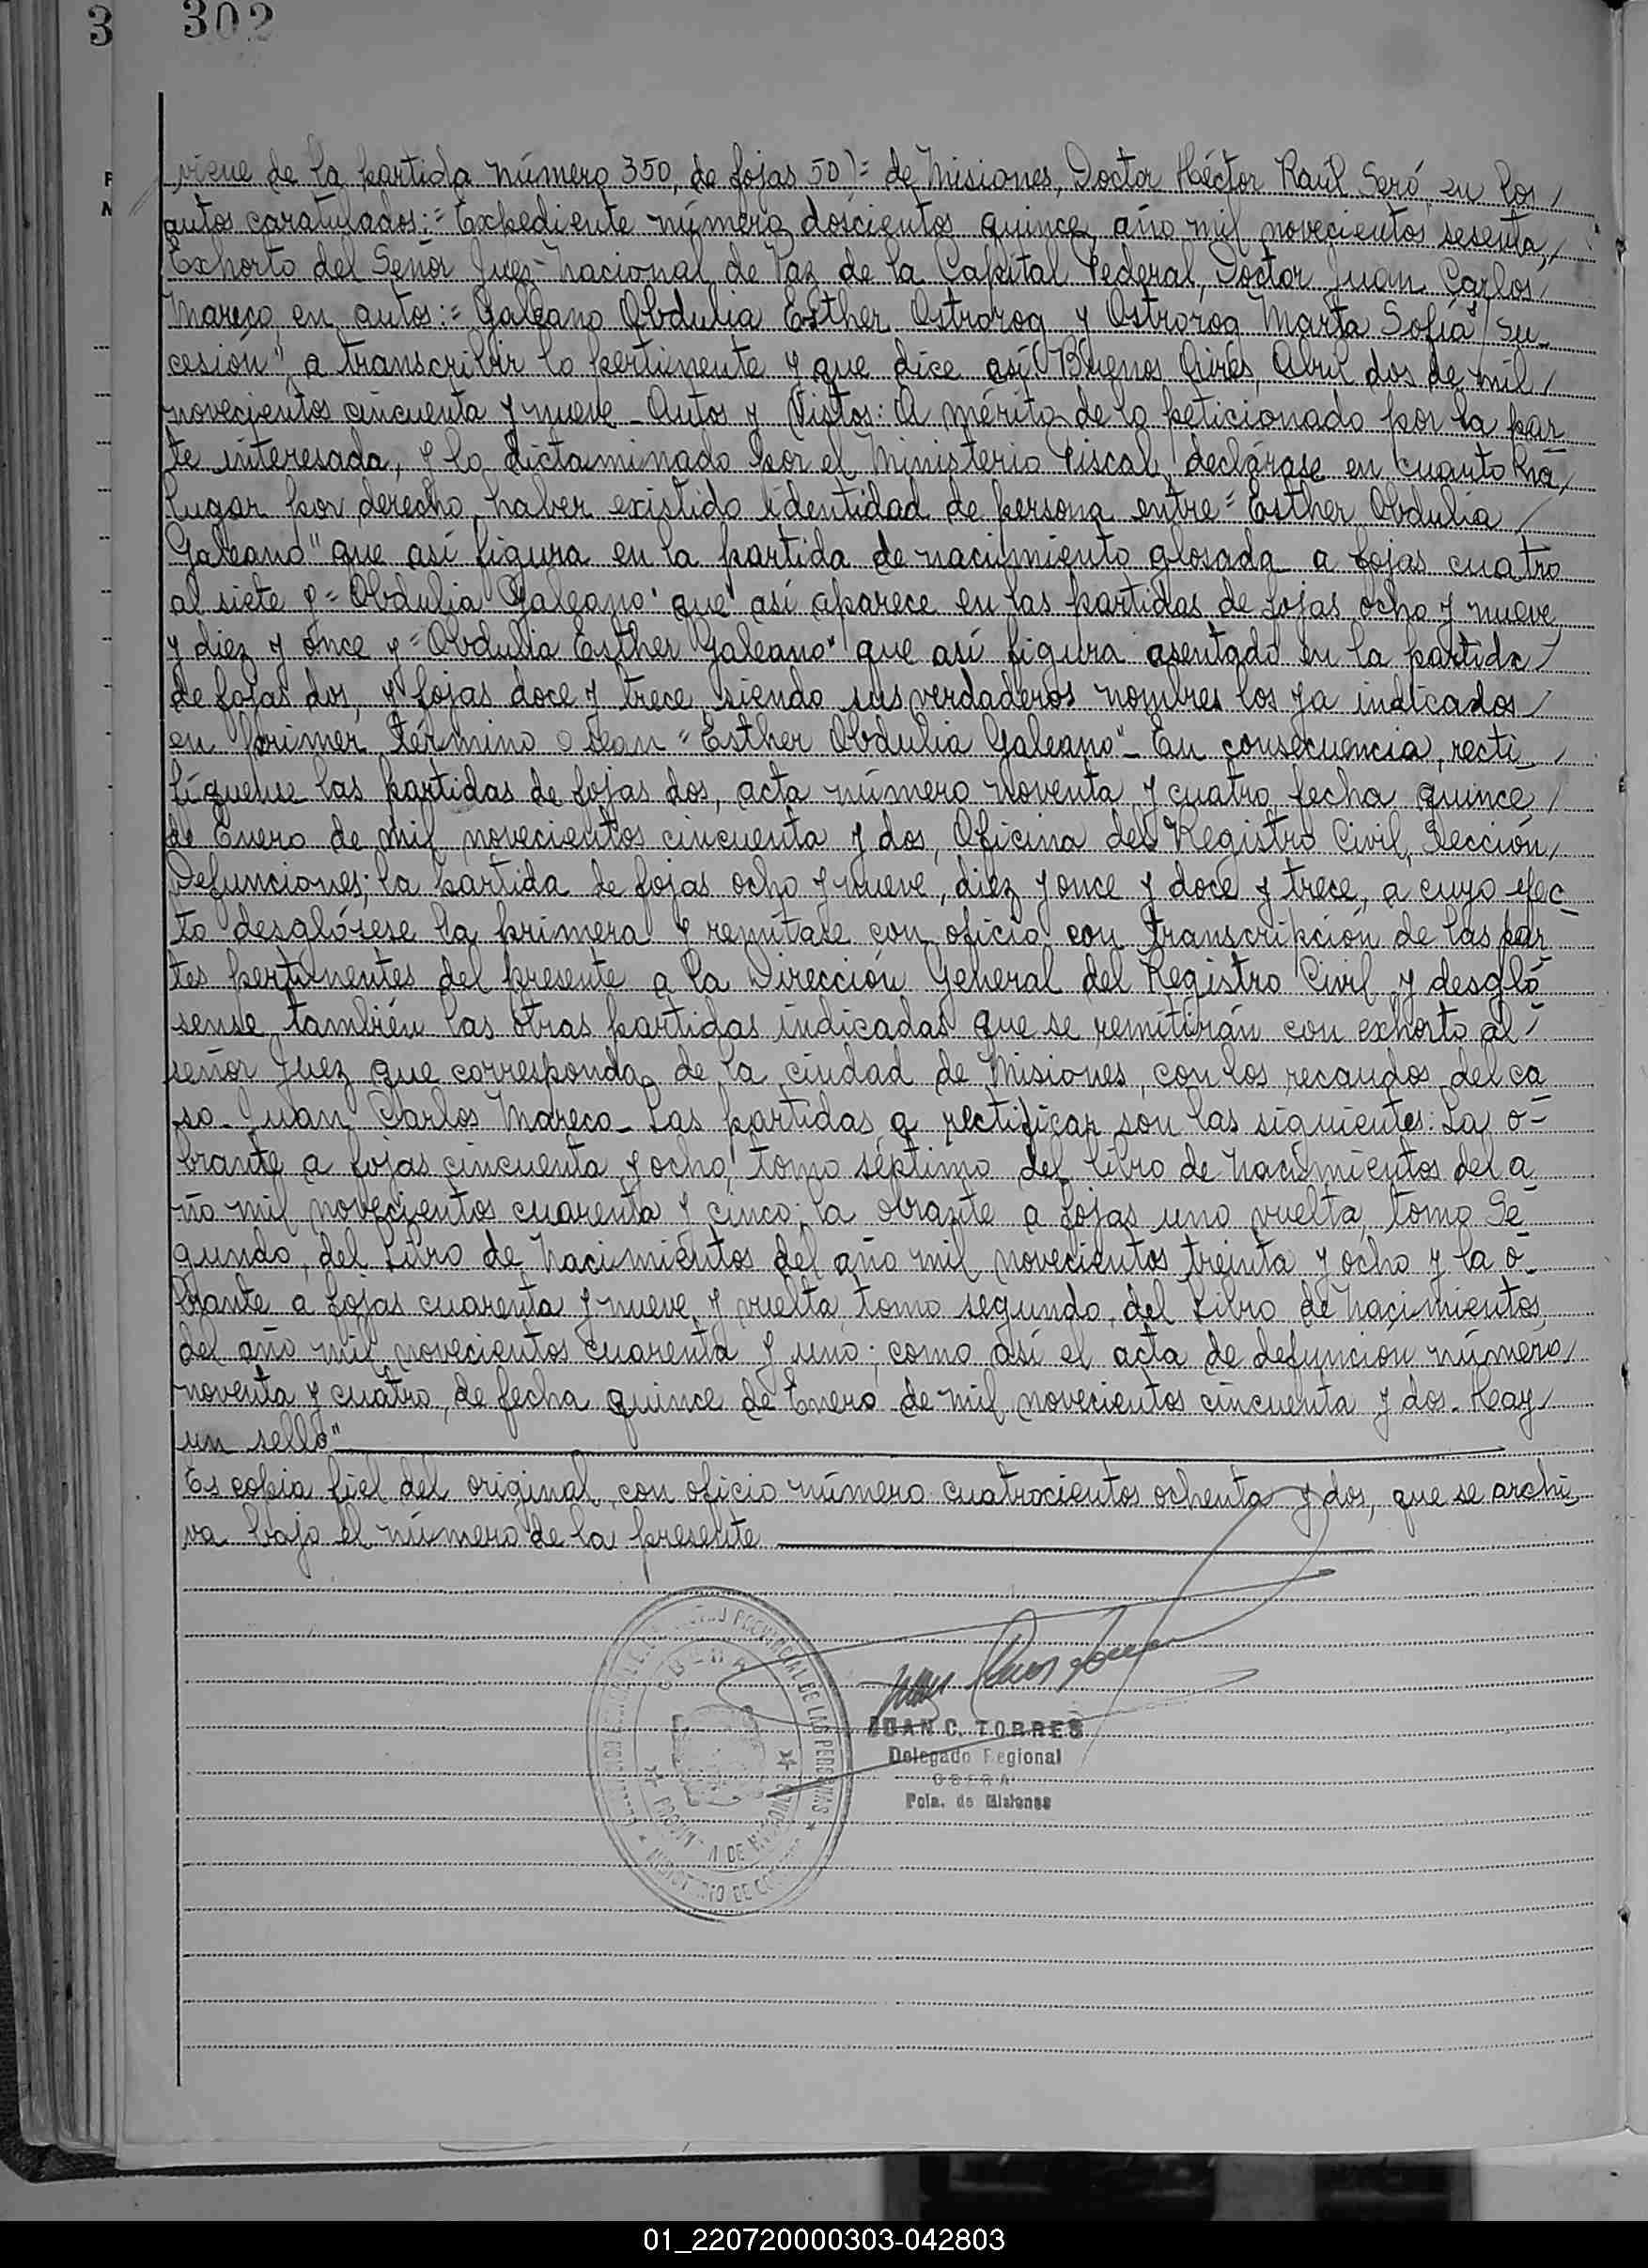 3 302
viene de la partida número 350, de fojas 50)= de Misiones, Doctor Héctor Raúl Seró, en los/
autos caratulados:= Expediente número doscientos quince, año mil novecientos sesenta,/
Exhorto del Señor Juez Nacional de Paz de la Capital Federal, Doctor Juan Carlos/
Mareco en autos:= Galeano Obdulia Esther Ostrorog y Ostrorog Marta Sofía s/ su-
cesión", a transcribir lo pertinente y que dice así: Buenos Aires, Abril dos de mil/
novecientos cincuenta y nueve - Autos y Vistos: A mérito de lo peticionado por la par
te interesada, y lo dictaminado por el Ministerio Fiscal, declárase en cuanto há/
lugar por derecho, haber existido identidad de persona entre = Esther Obdulia /
Galeano" que así figura en la partida de nacimiento glosada a fojas cuatro
al siete y = Obdulia Galeano" que así aparece en las partidas de fojas ocho y nueve
y diez y once y = Obdulia Esther Galeano" que así figura asentado en la partida /
de fojas dos, y fojas doce y trece, siendo sus verdaderos nombres los ya indicados /
en primer término o sean = Esther Obdulia Galeano" - En consecuencia, recti- /
fíquense las partidas de fojas dos, acta número noventa y cuatro, fecha quince /
de Enero de mil novecientos cincuenta y dos, Oficina del Registro Civil, Sección/
Defunciones; la partida de fojas ocho y nueve, diez y once y doce y trece, a cuyo efec-
to desglósese la primera y remítase con oficio con transcripción de las par
tes pertinentes del presente a la Dirección General del Registro Civil y desgló
sense también las otras partidas indicadas que se remitirán con exhorto al /
señor Juez que corresponda de la ciudad de Misiones, con los recaudos del ca
so - Juan Carlos Mareco - Las partidas a rectificar son las siguientes: La o-
brante a fojas cincuenta y ocho, tomo séptimo del libro de Nacimientos del a
ño mil novecientos cuarenta y cinco; la obrante a fojas uno vuelta, tomo Se-
gundo, del Libro de Nacimientos del año mil novecientos treinta y ocho y la o-
brante a fojas cuarenta y nueve y vuelta, tomo segundo, del Libro de Nacimientos
del año mil novecientos cuarenta y uno; como así el acta de defunción número/
noventa y cuatro, de fecha quince de Enero de mil novecientos cincuenta y dos - Hay/
un sello"
Es copia fiel del original, con oficio número cuatrocientos ochenta y dos, que se archi-
va bajo el número de la presente
PROVINCIAL DE LAS PERSONAS
OBERA
JUAN C. TORRES
Delegado Regional
OBERA
Pcia. de Misiones
01_220720000303-042803